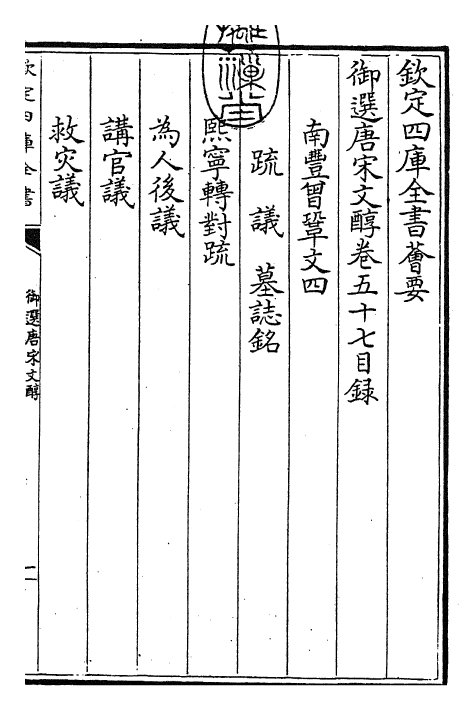 欽定四庫全書薈要
御選唐宋文醇卷五十七目録
南豐曾鞏文四
疏　議　墓誌銘
熙寧轉對疏
為人後議
講官議
救灾議
欽定四庫全書
御選唐宋文醇